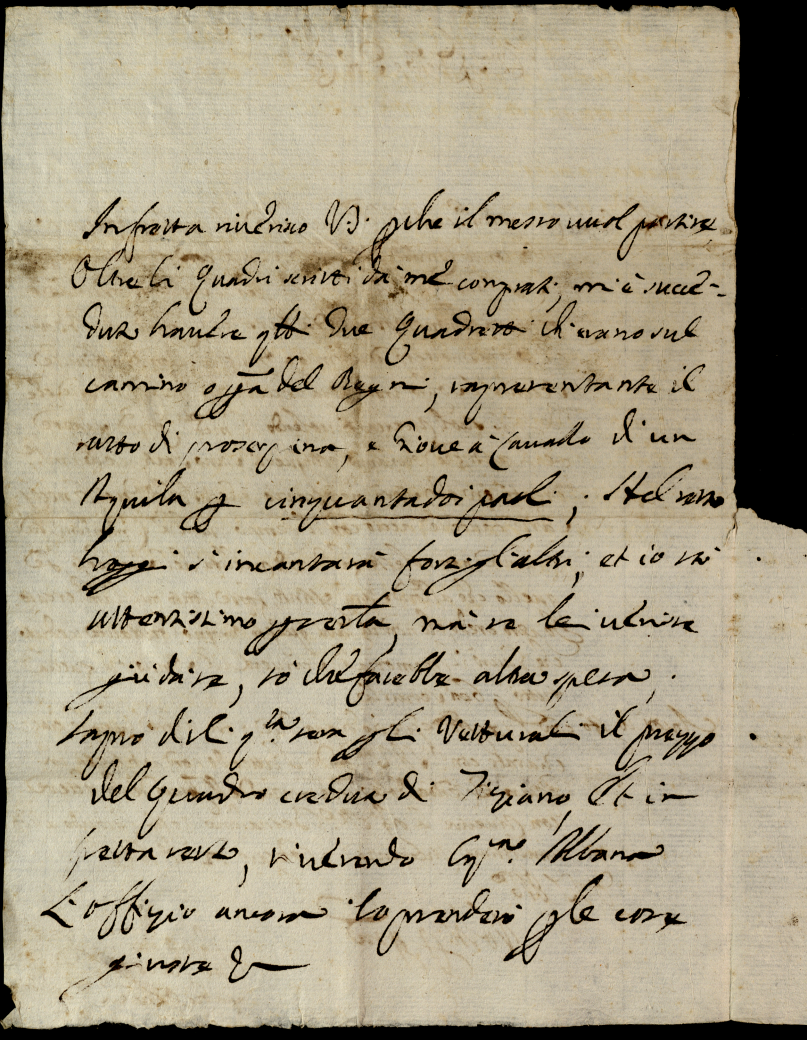 In fretta riverisco VS. p che il messo vuol partire,
Oltre li Quadri scritti da me comprati, mi è succe-
duto havere qtti due Quadretti ch'erano sul
camino del rapresentante il
ratto di proserpina, e Giove à Cavallo di un
Aquila p cinquantadoi paoli; Nel resto
hoggi s'incantarà forsi gl'altri, et io stò
attentissimo p, mà se lei venisse
giudare, sò che farebbe altra spesa,
Saprò di li sera p li Vetturali il prezzo
del Quadro creduto di Tiziano, Et in
fretta resto, riverendo Albana
L'offizio ancora lo prenderò p le cose
giuste &